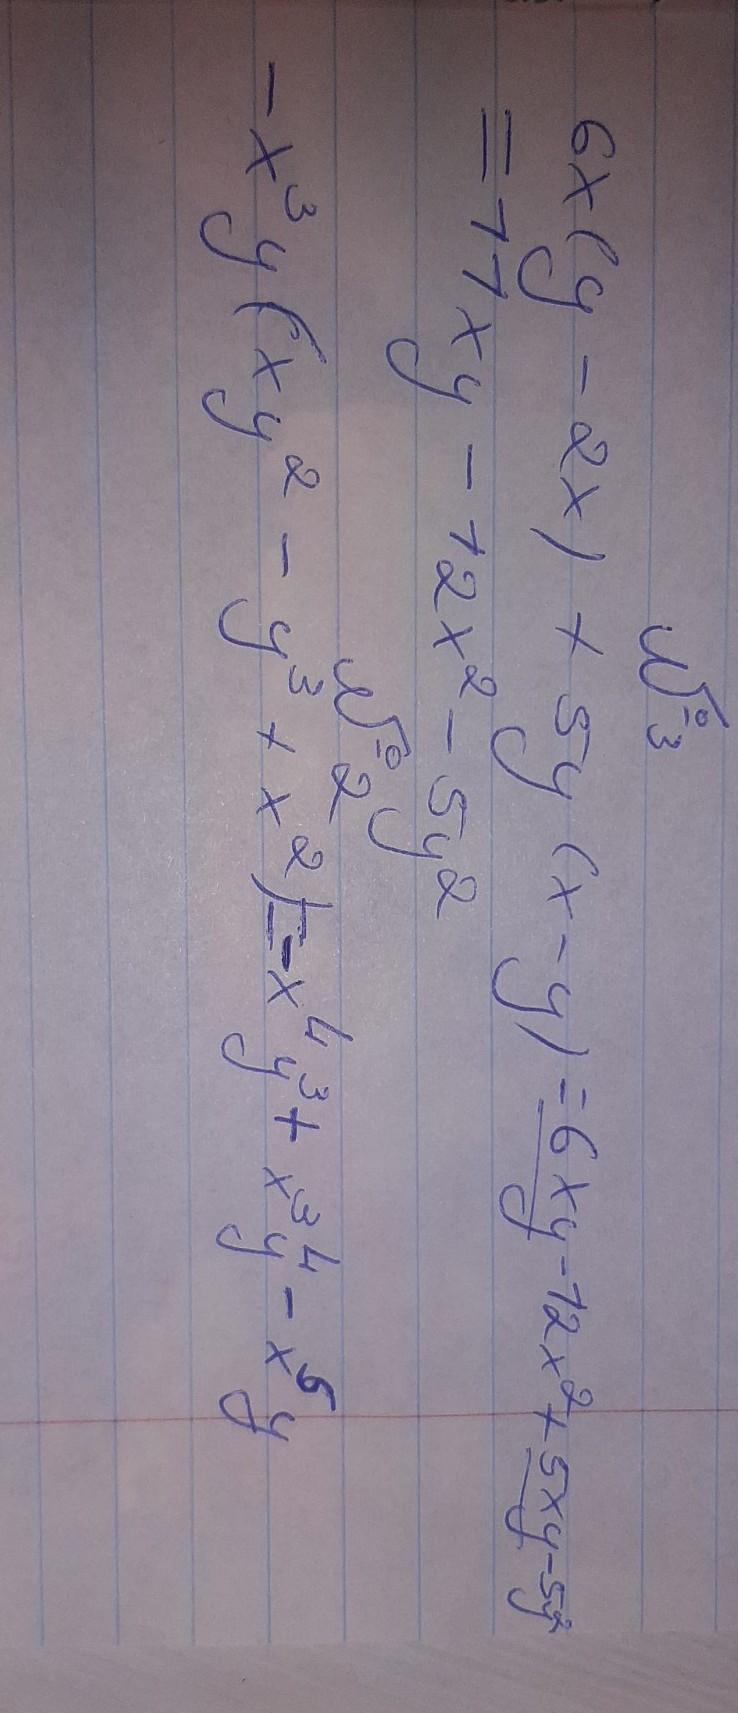 №3
6x(y - 2x) + 5y (x - y) = 6xy - 12x² + 5xy - 5y²
= 11xy - 12x² - 5y²
№2
- x³y(xy² - y³ + x²) = - x⁴y³ + x³y⁴ - x⁵y